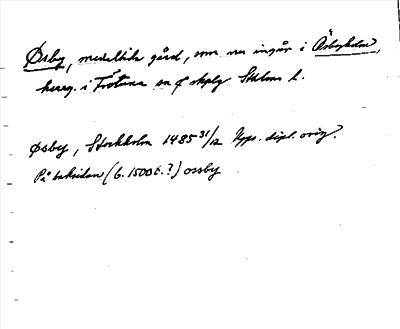 Ösby, medeltida gård, som nu ingår i Ösbyholm,
herrg. i Frötuna sn o skplg Sthlms l.
Ösby, Stockholm 1485 31/12 Upps. dipl. orig.
På baksidan (b. 1500 t.?) ossby